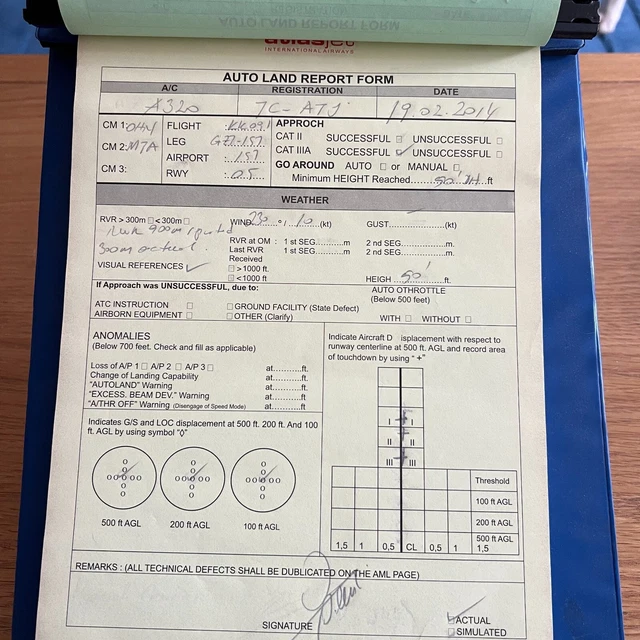 AUTO LAND REPORT FORM
atlasjet
INTERNATIONAL AIRWAYS
AUTO LAND REPORT FORM
A/C REGISTRATION DATE
A320 TC-ATJ 19.02.2014
CM 1: FLIGHT :KK091
CM 2: LEG
CM 3: AIRPORT
RWY :05
APPROCH
CAT II SUCCESSFUL UNSUCCESSFUL
CAT IIIA SUCCESSFUL UNSUCCESSFUL
GO AROUND AUTO or MANUAL
Minimum HEIGHT Reached 50' ft
WEATHER
RVR > 300m < 300m WIND 230 °/ 10 (kt) GUST (kt)
300m actual
RVR at OM : 1 st SEG m 2 nd SEG m.
Last RVR 1 st SEG m 2 nd SEG m.
Received
VISUAL REFERENCES
> 1000 ft.
< 1000 ft. HEIGH 50' ft.
If Approach was UNSUCCESSFUL, due to:
AUTO OTHROTTLE
(Below 500 feet)
ATC INSTRUCTION GROUND FACILITY (State Defect)
AIRBORN EQUIPMENT OTHER (Clarify) WITH WITHOUT
ANOMALIES
(Below 700 feet. Check and fill as applicable)
Loss of A/P 1 A/P 2 A/P 3 at ft.
Change of Landing Capability at ft
"AUTOLAND" Warning at ft
"EXCESS. BEAM DEV." Warning at ft
"A/THR OFF" Warning (Disengage of Speed Mode) at ft
Indicates G/S and LOC displacement at 500 ft. 200 ft. And 100
ft. AGL by using symbol "◊"
500 ft AGL 200 ft AGL 100 ft AGL
Indicate Aircraft D isplacement with respect to
runway centerline at 500 ft. AGL and record area
of touchdown by using "+"
I I
II II
III III
Threshold
100 ft AGL
200 ft AGL
500 ft AGL
1,5 1 0,5 CL 0,5 1 1,5
REMARKS : (ALL TECHNICAL DEFECTS SHALL BE DUBLICATED ON THE AML PAGE)
SIGNATURE
ACTUAL
SIMULATED